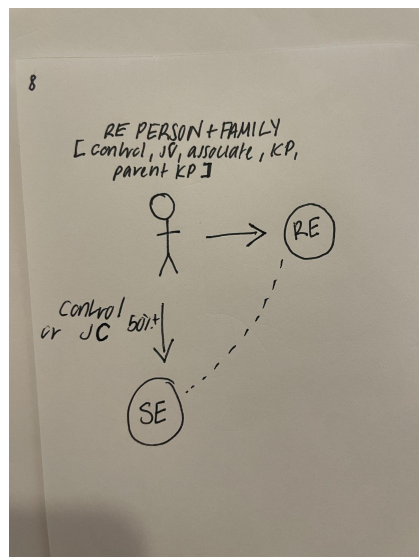 8
RE PERSON + FAMILY
[ control, JV, associate, KP,
parent KP ]
RE
control
or JC 50%+
SE